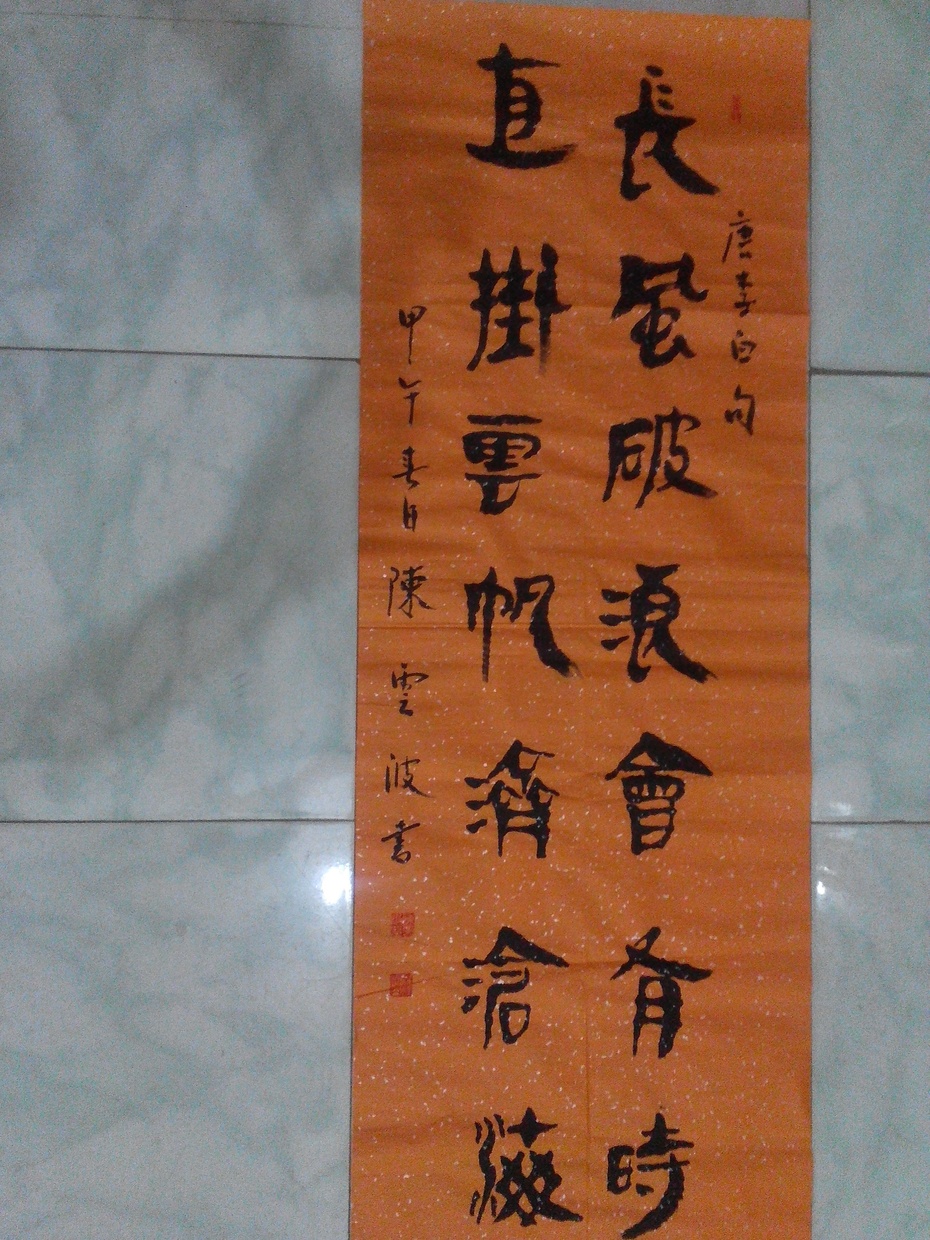 唐李白句
長風破浪會有時
直掛雲帆濟滄海
甲午春日陳雲波书